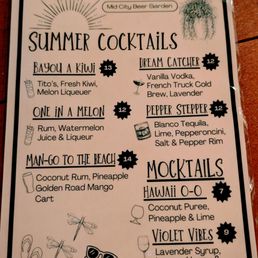 Mid City Beer Garden
SUMMER COCKTAILS
BAYOU A KIWI 13
Tito's, Fresh Kiwi,
Melon Liqueur
DREAM CATCHER 12
Vanilla Vodka,
French Truck Cold
Brew, Lavender
ONE IN A MELON 12
Rum, Watermelon
Juice & Liqueur
PEPPER STEPPER 12
Blanco Tequila,
Lime, Pepperoncini,
Salt & Pepper Rim
MAN-GO TO THE BEACH 14
Coconut Rum, Pineapple
Golden Road Mango
Cart
MOCKTAILS
HAWAII 0-0 7
Coconut Puree,
Pineapple & Lime
VIOLET VIBES 9
Lavender Syrup,